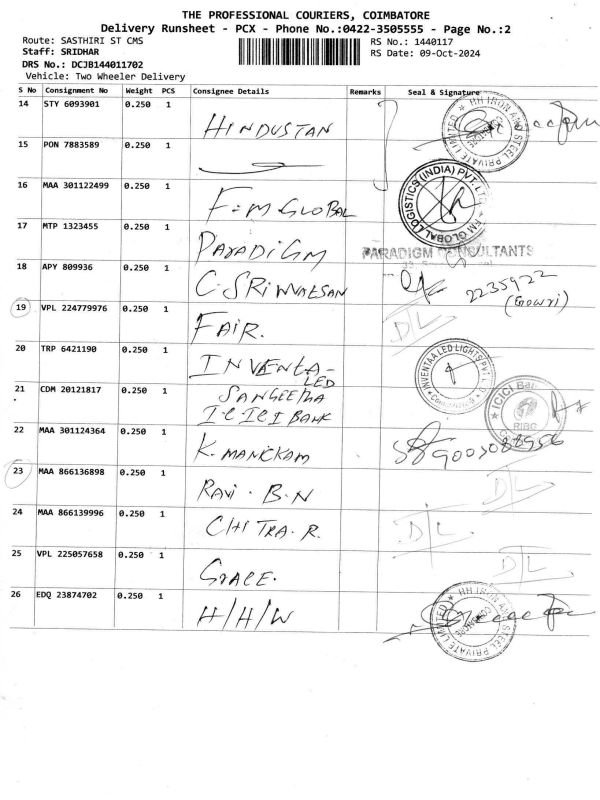 THE PROFESSIONAL COURIERS, COIMBATORE
Delivery Runsheet - PCX - Phone No.:0422-3505555 - Page No.:2
Route: SASTHIRI ST CMS
RS No.: 1440117
Staff: SRIDHAR
RS Date: 09-Oct-2024
DRS No.: DCJB144011702
Vehicle: Two Wheeler Delivery
S No Consignment No Weight PCS Consignee Details Remarks Seal & Signature
14 STY 6093901 0.250 1 HINDUSTAN
RH IRON AND STEEL PRIVATE LIMITED
15 PON 7883589 0.250 1
16 MAA 301122499 0.250 1 F=M GLOBAL
FM GLOBAL LOGISTICS (INDIA) PVT. LTD.
17 MTP 1323455 0.250 1 PARADIGM
PARADIGM CONSULTANTS
18 APY 809936 0.250 1 C. SRINIVAESAN
2235922
(Gowri)
19 VPL 224779976 0.250 1 FAIR.
D/L
20 TRP 6421190 0.250 1 INVENTA-
LED
INVENTAA LED LIGHTS PVT L
21 CDM 20121817 0.250 1 SANGEETHA
ICICI BANK
ICICI Ban
RIBG
22 MAA 301124364 0.250 1 K. MANICKAM
9003088956
23 MAA 866136898 0.250 1 RAVI. B.N
D/L
24 MAA 866139996 0.250 1 CHITRA. R.
D/L
25 VPL 225057658 0.250 1 GRACE.
D/L
26 EDQ 23874702 0.250 1 H/H/W
RH IRON AND STEEL PRIVATE LIMITED